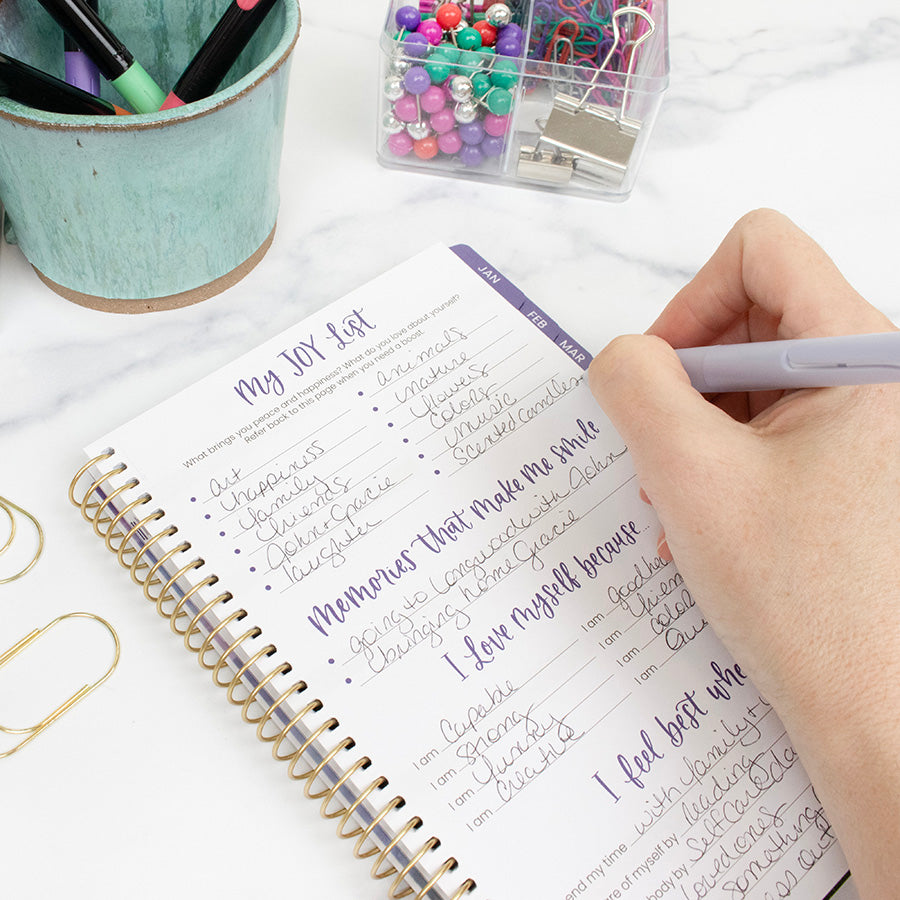 JAN
FEB
MAR
My JOY List
What brings you peace and happiness? What do you love about yourself?
Refer back to this page when you need a boost.
art
happiness
family
friends
John + Gracie
laughter
animals
nature
flowers
colors
music
scented candles
Memories that make me smile
going to Longwood with John
bringing home Gracie
I love myself because...
I am capable
I am strong
I am funny
I am creative
I am
I am
I am
I am
I feel best whe
end my time with family +
re of myself by reading
body by self care
loved ones
something